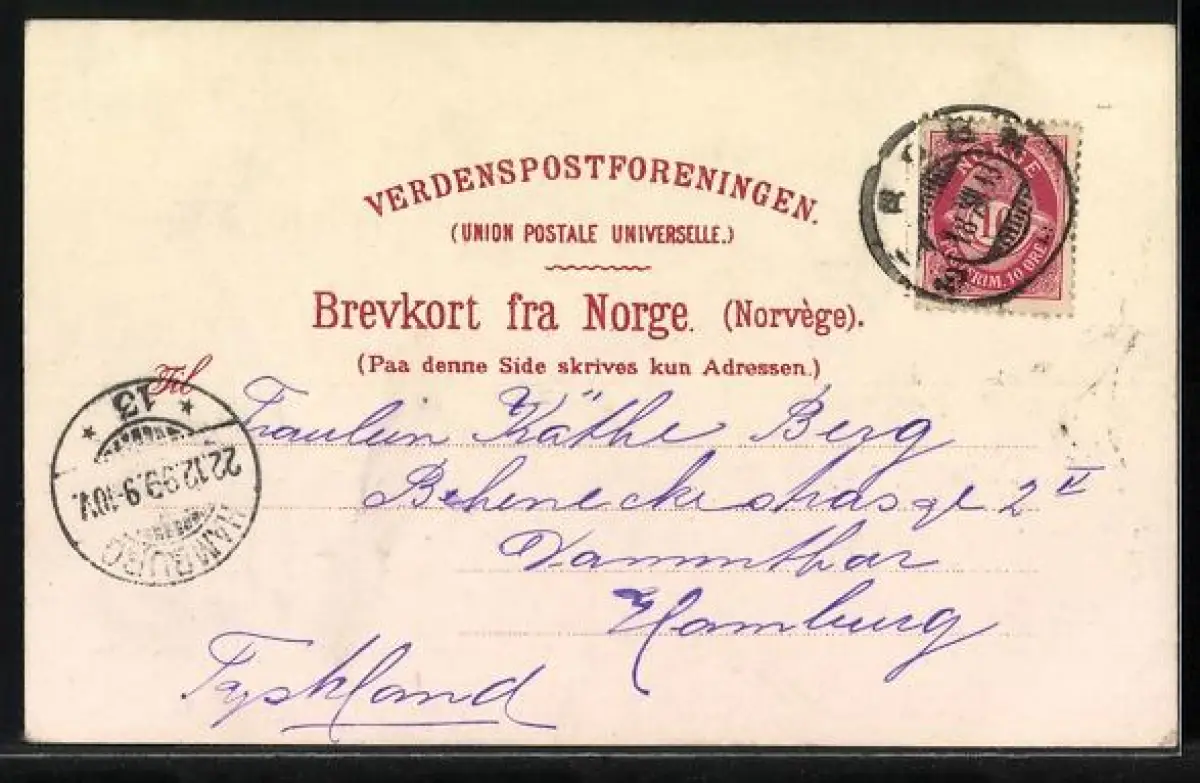 VERDENSPOSTFORENINGEN.
(UNION POSTALE UNIVERSELLE.)
Brevkort fra Norge. (Norvège).
(Paa denne Side skrives kun Adressen.)
NORGE
10
FRIM. 10 ORE
Til
Fraulein Käthe Berg
2 II
Dammthor
Hamburg
Tyskland
13
22.12.99.9-10V.
HAMBURG